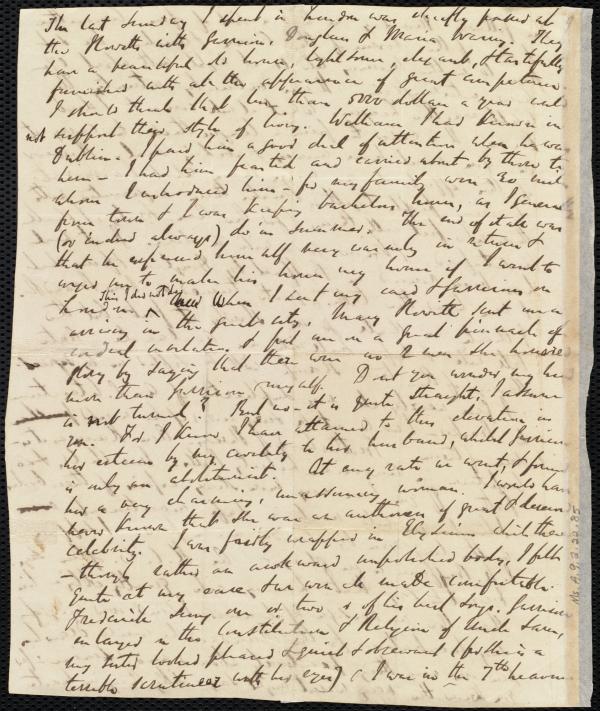 The last Sunday I spent in London was chiefly passed at
the Howitts with Garrison, Douglass & Maria Waring. They
have a beautiful house, lightsome, elegant, & tastefully
furnished with all the appearance of great competence.
I should think that less than 5000 dollars a year would
not support their style of living. William I had known in
Dublin. I paid him a good deal of attention when he was
here - I had him feasted and carried about by those to
whom I introduced him - for my family were 20 miles
from town & I was keeping bachelors house, as I generally
(or indeed always) do in summer. The end of it all was
that he expressed himself very warmly in return &
urged me to make his house my home if I went to
London. This I did not do. When I sent my card & Garrison's on
arriving in the great city, Mary Howitt sent me a
cordial invitation & put me on a great pinnacle of
glory by saying that there were no 2 men she honored
more than Garrison & myself. Don't you wonder my head
is not turned? But no - it is quite straight, I assure
you. For I know I have attained to this elevation in
her esteem by my civility to her husband, whilst Garrison
is only an abolitionist. At any rate we went, & found
her a very charming, unassuming woman. I would have
never known that she was an authoress of great & deserved
celebrity. I was fairly wrapped in Elysium while there
- though rather an awkward unpolished body, I felt
quite at my ease, & we were all made comfortable.
Frederick sung one or two of his best songs, Garrison
enlarged on the Constitution & Religion of Uncle Sam,
my sister looked pleased & quiet & observant (for she is a
terrible scrutineer with her eyes) & I was in the 7th heaven
Ms. A.9.2.22.85